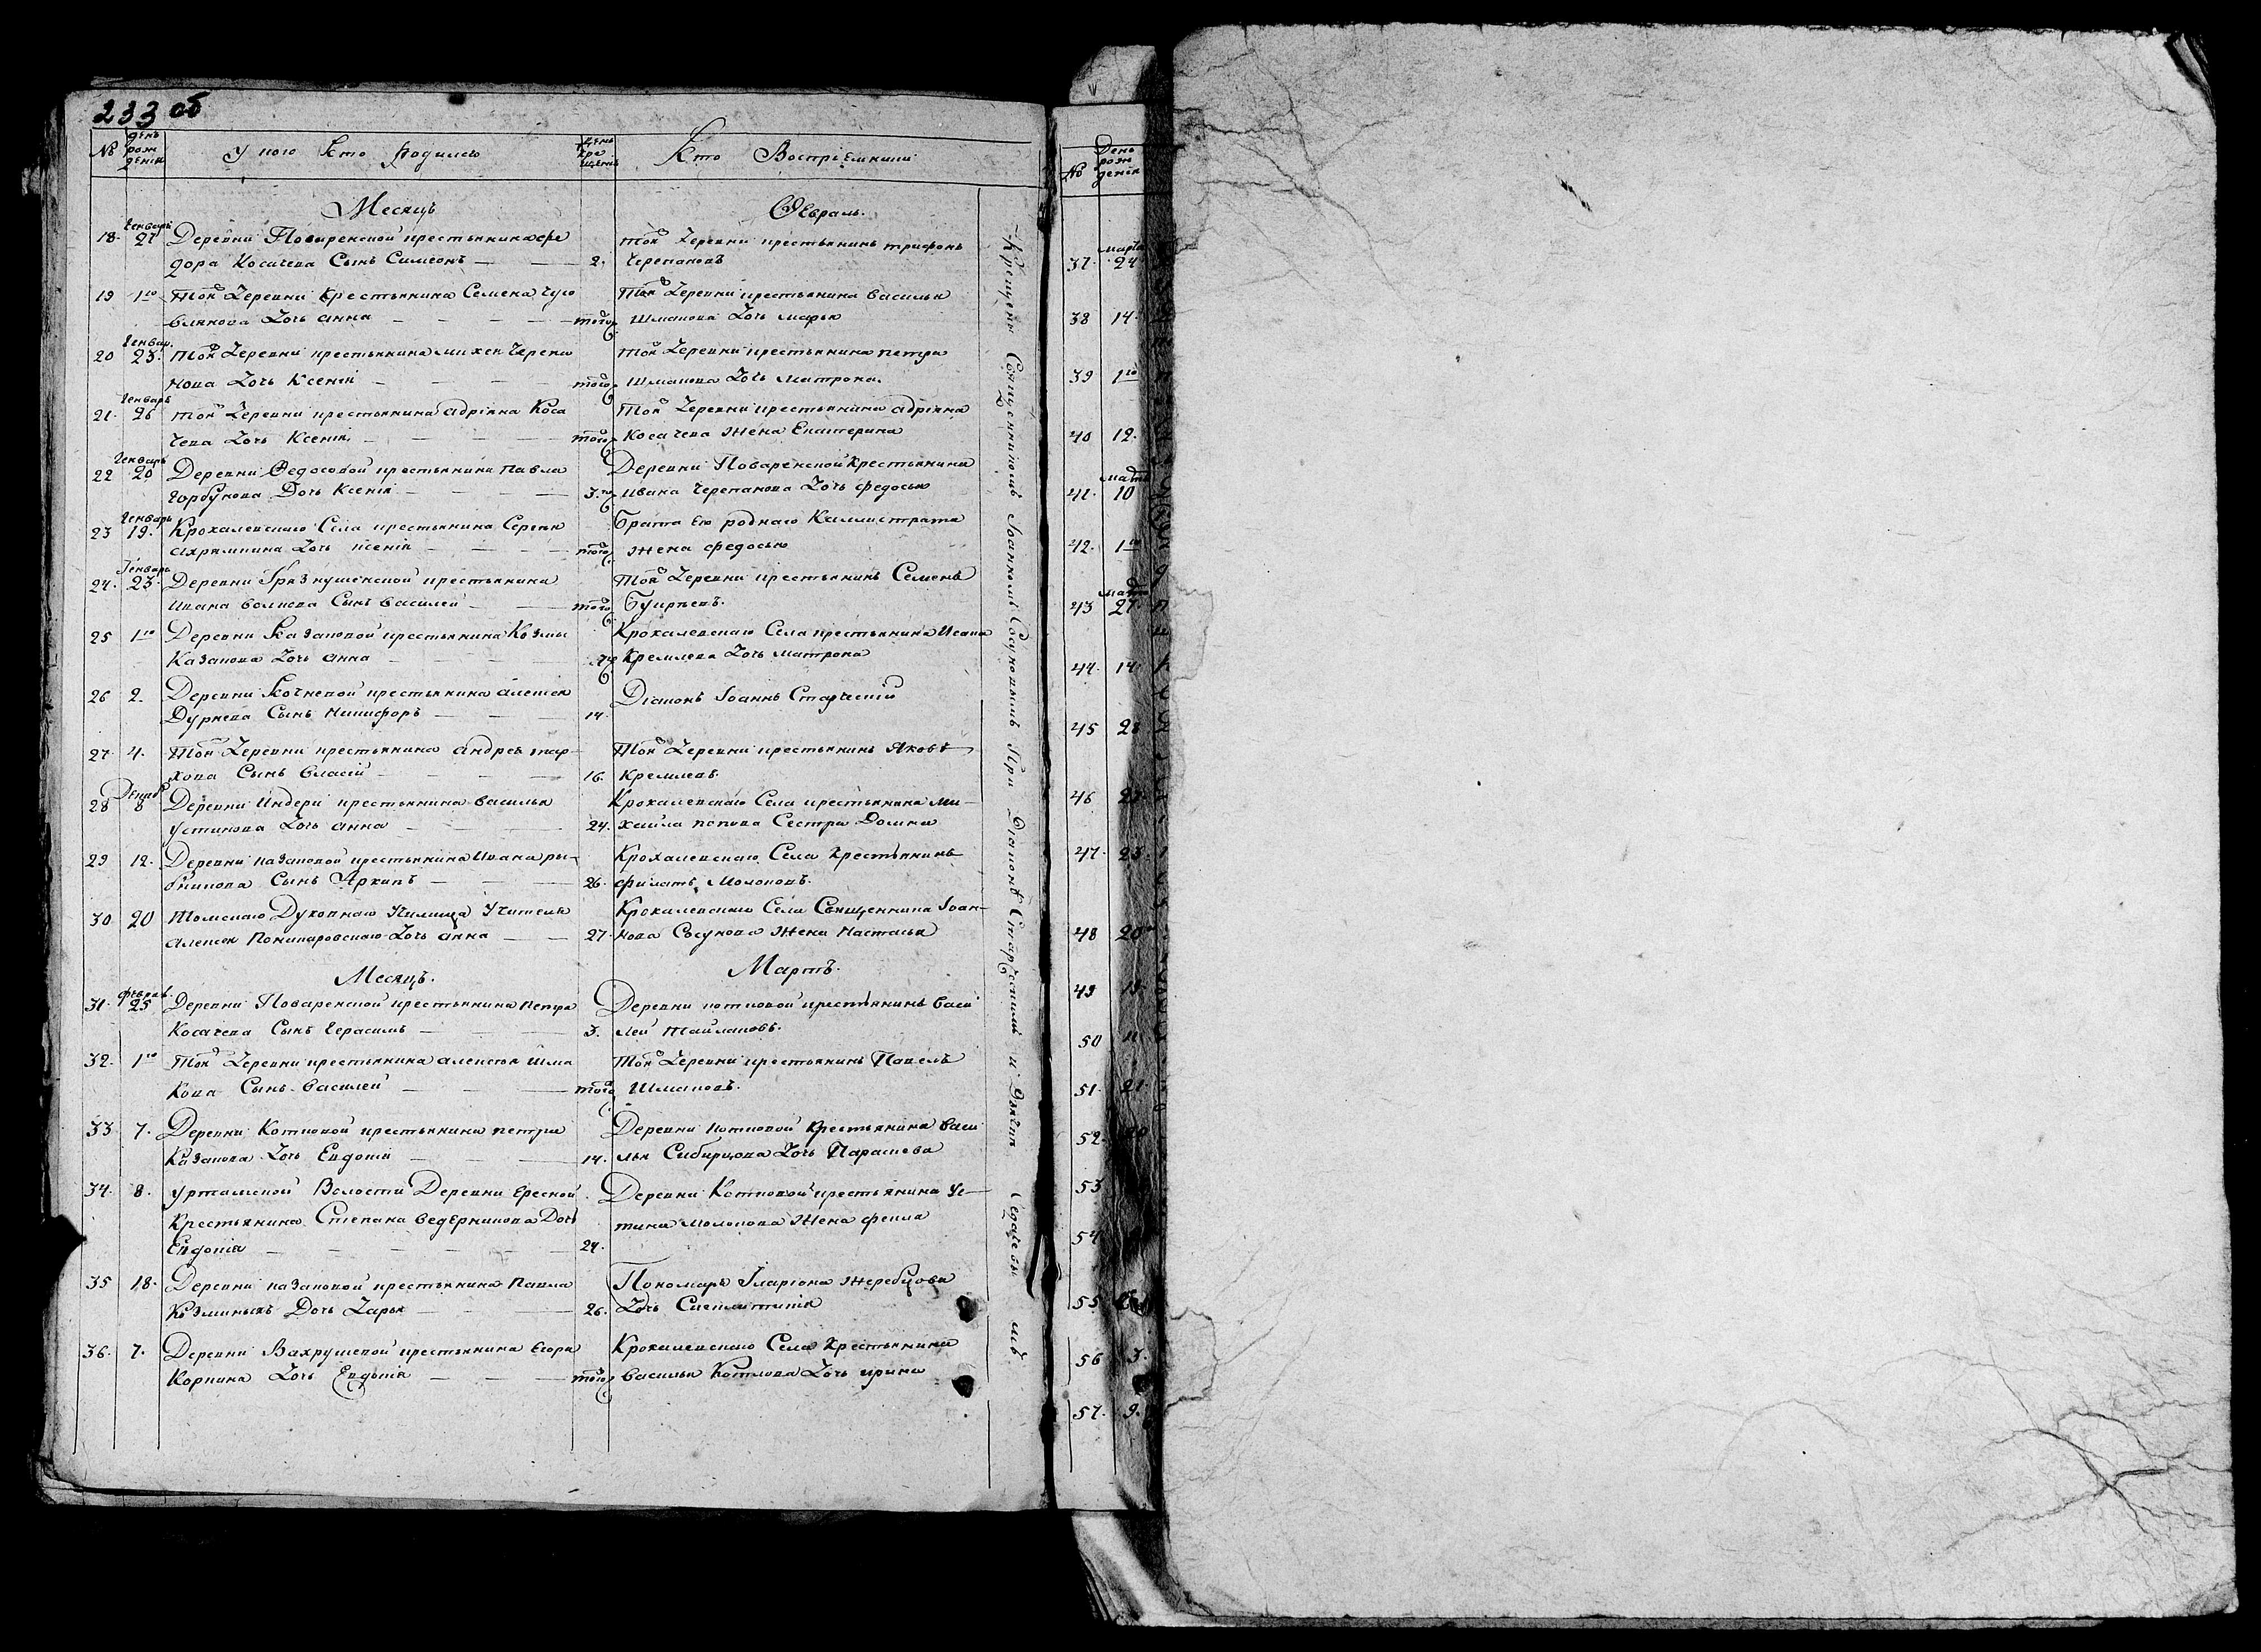 233 об
№ день рождения У кого кто родился день крещения Кто Восприемники
Месяцъ Февраль.
18. Генварь 27 Деревни Поваренской крестьянина Фе той деревни крестьянинъ трифонъ
дора Косачева Сынъ Симеонъ — — 2. Черепановъ
19 1го той деревни Крестьянина Семена Чуго той деревни крестьянина василья
влянова дочь анна — — — — того Шмакова дочь марья
20 Генвар. 23. той деревни крестьянина михея Черепа той деревни крестьянина петра
нова дочь Ксенія — — — — того Шмакова дочь матрона.
21. Генварь 26 той деревни крестьянина адріяна Коса той деревни крестьянина адріяна
чева дочь Ксенія — — — — того Косачева жена Екатерина
22 Генварь 20 Деревни Федосовой крестьянина павла Деревни Поваренской крестьянина
Горбунова Дочь Ксенія — — — 3. ивана Черепанова дочь федосья
23 Генварь 19. Крохалевскаго Села крестьянина Сергѣя Брата его роднаго Каллистрата
дочь ксенія — — — того жена федосья
24. Генварь 23. Деревни крестьянина той деревни крестьянинъ Семенъ
ивана волкова Сынъ василей — — того
25 1го Деревни Казановой крестьянина Козмы Крохалевскаго Села крестьянина Исака
Казанова дочь анна — — — Кремлева дочь матрона
26 2. Деревни Кочневой крестьянина алексея Діаконъ Іоаннъ Старческій
Дурнева Сынъ Никифоръ — — — 14.
27 4. той деревни крестьянина андрея пар- той деревни крестьянинъ Яковъ
хова Сынъ власій — — — — 16. Кремлевъ.
28 8 Деревни Индери крестьянина василья Крохалевскаго Села крестьянина Ми-
устинова дочь анна — — — 24. хаила попова Сестра Домна
29 12. Деревни казановой крестьянина ивана ры- Крохалевскаго Села крестьянинъ
бникова Сынъ Архипъ — — — 26. филатъ Молоковъ.
30 20 Томскаго Духовнаго Училища Учителя Крохалевскаго Села Священника Іоан-
алексея Поникаровскаго дочь анна — — 27. нова Сосунова жена Настасья
Месяцъ. Мартъ.
31. февраль 25 Деревни Поваренской крестьянина петра Деревни котковой крестьянинъ васи
Косачева Сынъ Герасимъ — — — 3. лей Тайлаковъ.
32. 1го той деревни крестьянина алексея Шма той деревни крестьянинъ Павелъ
кова Сынъ василей — — — того Шмаковъ.
33 7. Деревни Котковой крестьянина петра Деревни котковой Крестьянина васи
Казанова дочь Евдокія — — — 14. лья Сибирцова дочь Парасковья
34. 8. Уртамской Волости Деревни Ересной Деревни Котковой крестьянина Ус-
Крестьянина Степана ведерникова Дочь тина молокова жена фекла
Евдокія — — — — — — 24.
35 18. Деревни казановой крестьянина павла Пономаря Іларіона жеребцова
Козминыхъ Дочь дарья — — — 26. дочь
36. 7. Деревни Вахрушевой крестьянина егора Крохалевскаго Села Крестьянина
Корнина дочь Евдокія — — — того василья Котлова дочь ирина
Крещены Священникомъ Іоанномъ Сосуновымъ При Діаконѣ Старческимъ и
№ День рождения
37. марта 24
38 14.
39 1го
40 12.
41. 10
42. 1го
43 27.
44. 14.
45 28
46 27.
47. 23.
48 20
49 19.
50 11.
51. 21.
52.
53
54
55
56 3.
57. 9.